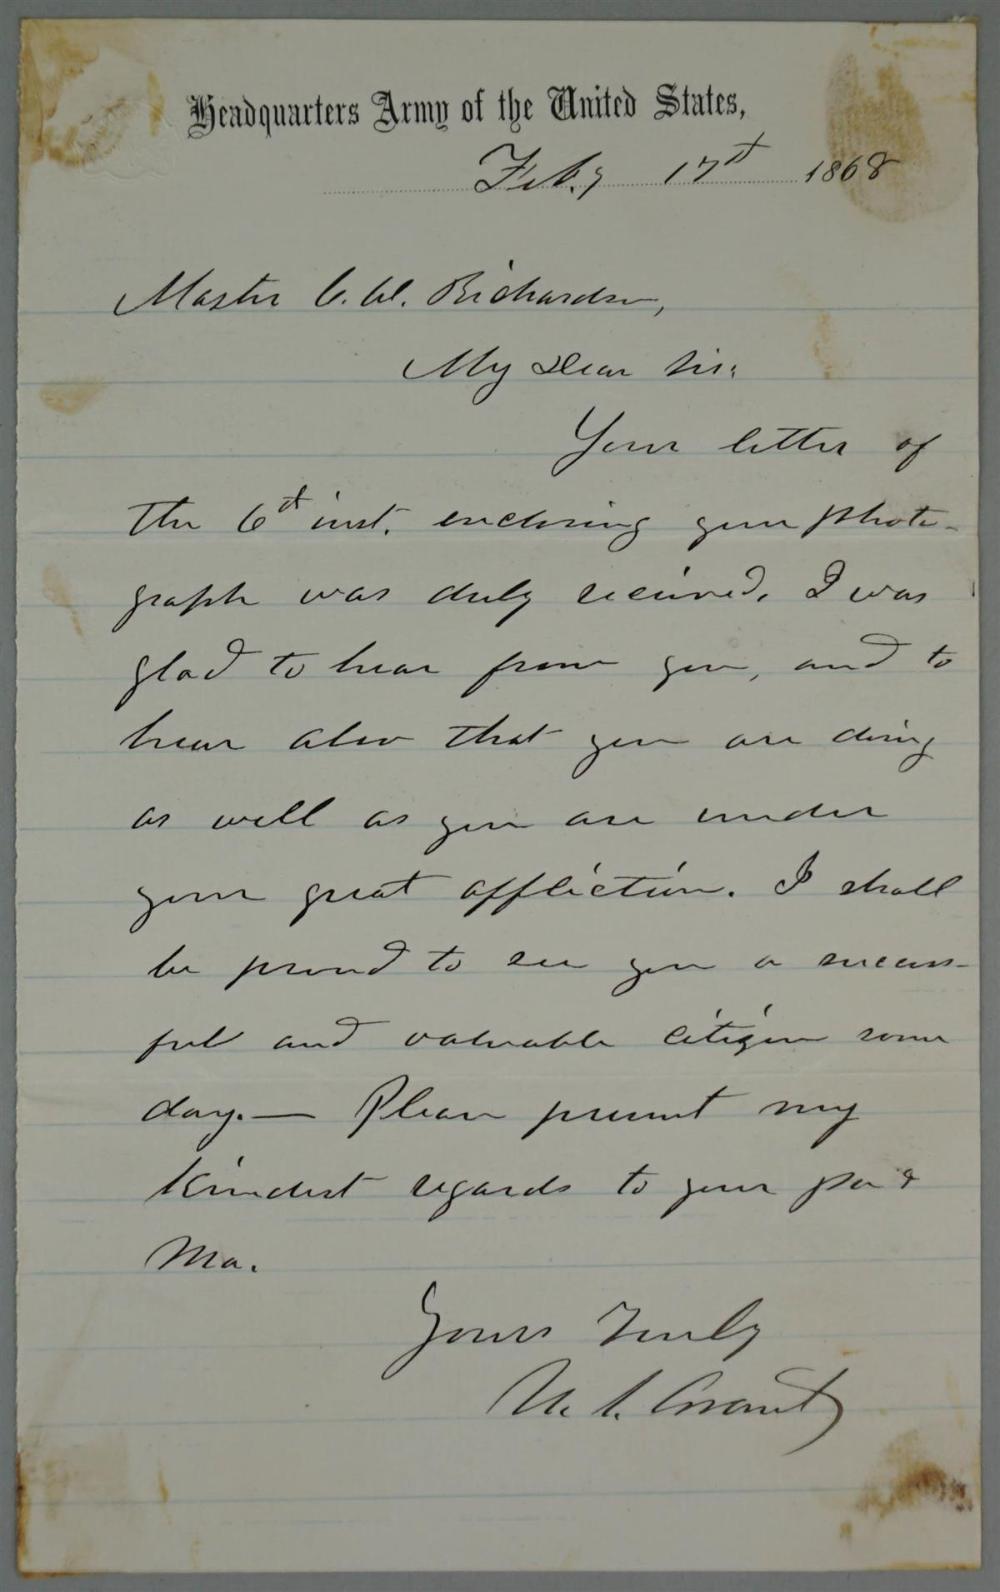 Headquarters Army of the United States,
Feb.y 17th 1868
Master C. W. Richardson,
My Dear Sir:
Your letter of
the 6th inst. enclosing your photo-
graph was duly received. I was
glad to hear from you, and to
hear also that you are doing
as well as you are under
your great affliction. I shall
be proud to see you a success-
ful and valuable citizen some
day.— Please present my
kindest regards to your pa &
Ma.
Yours Truly
U. S. Grant